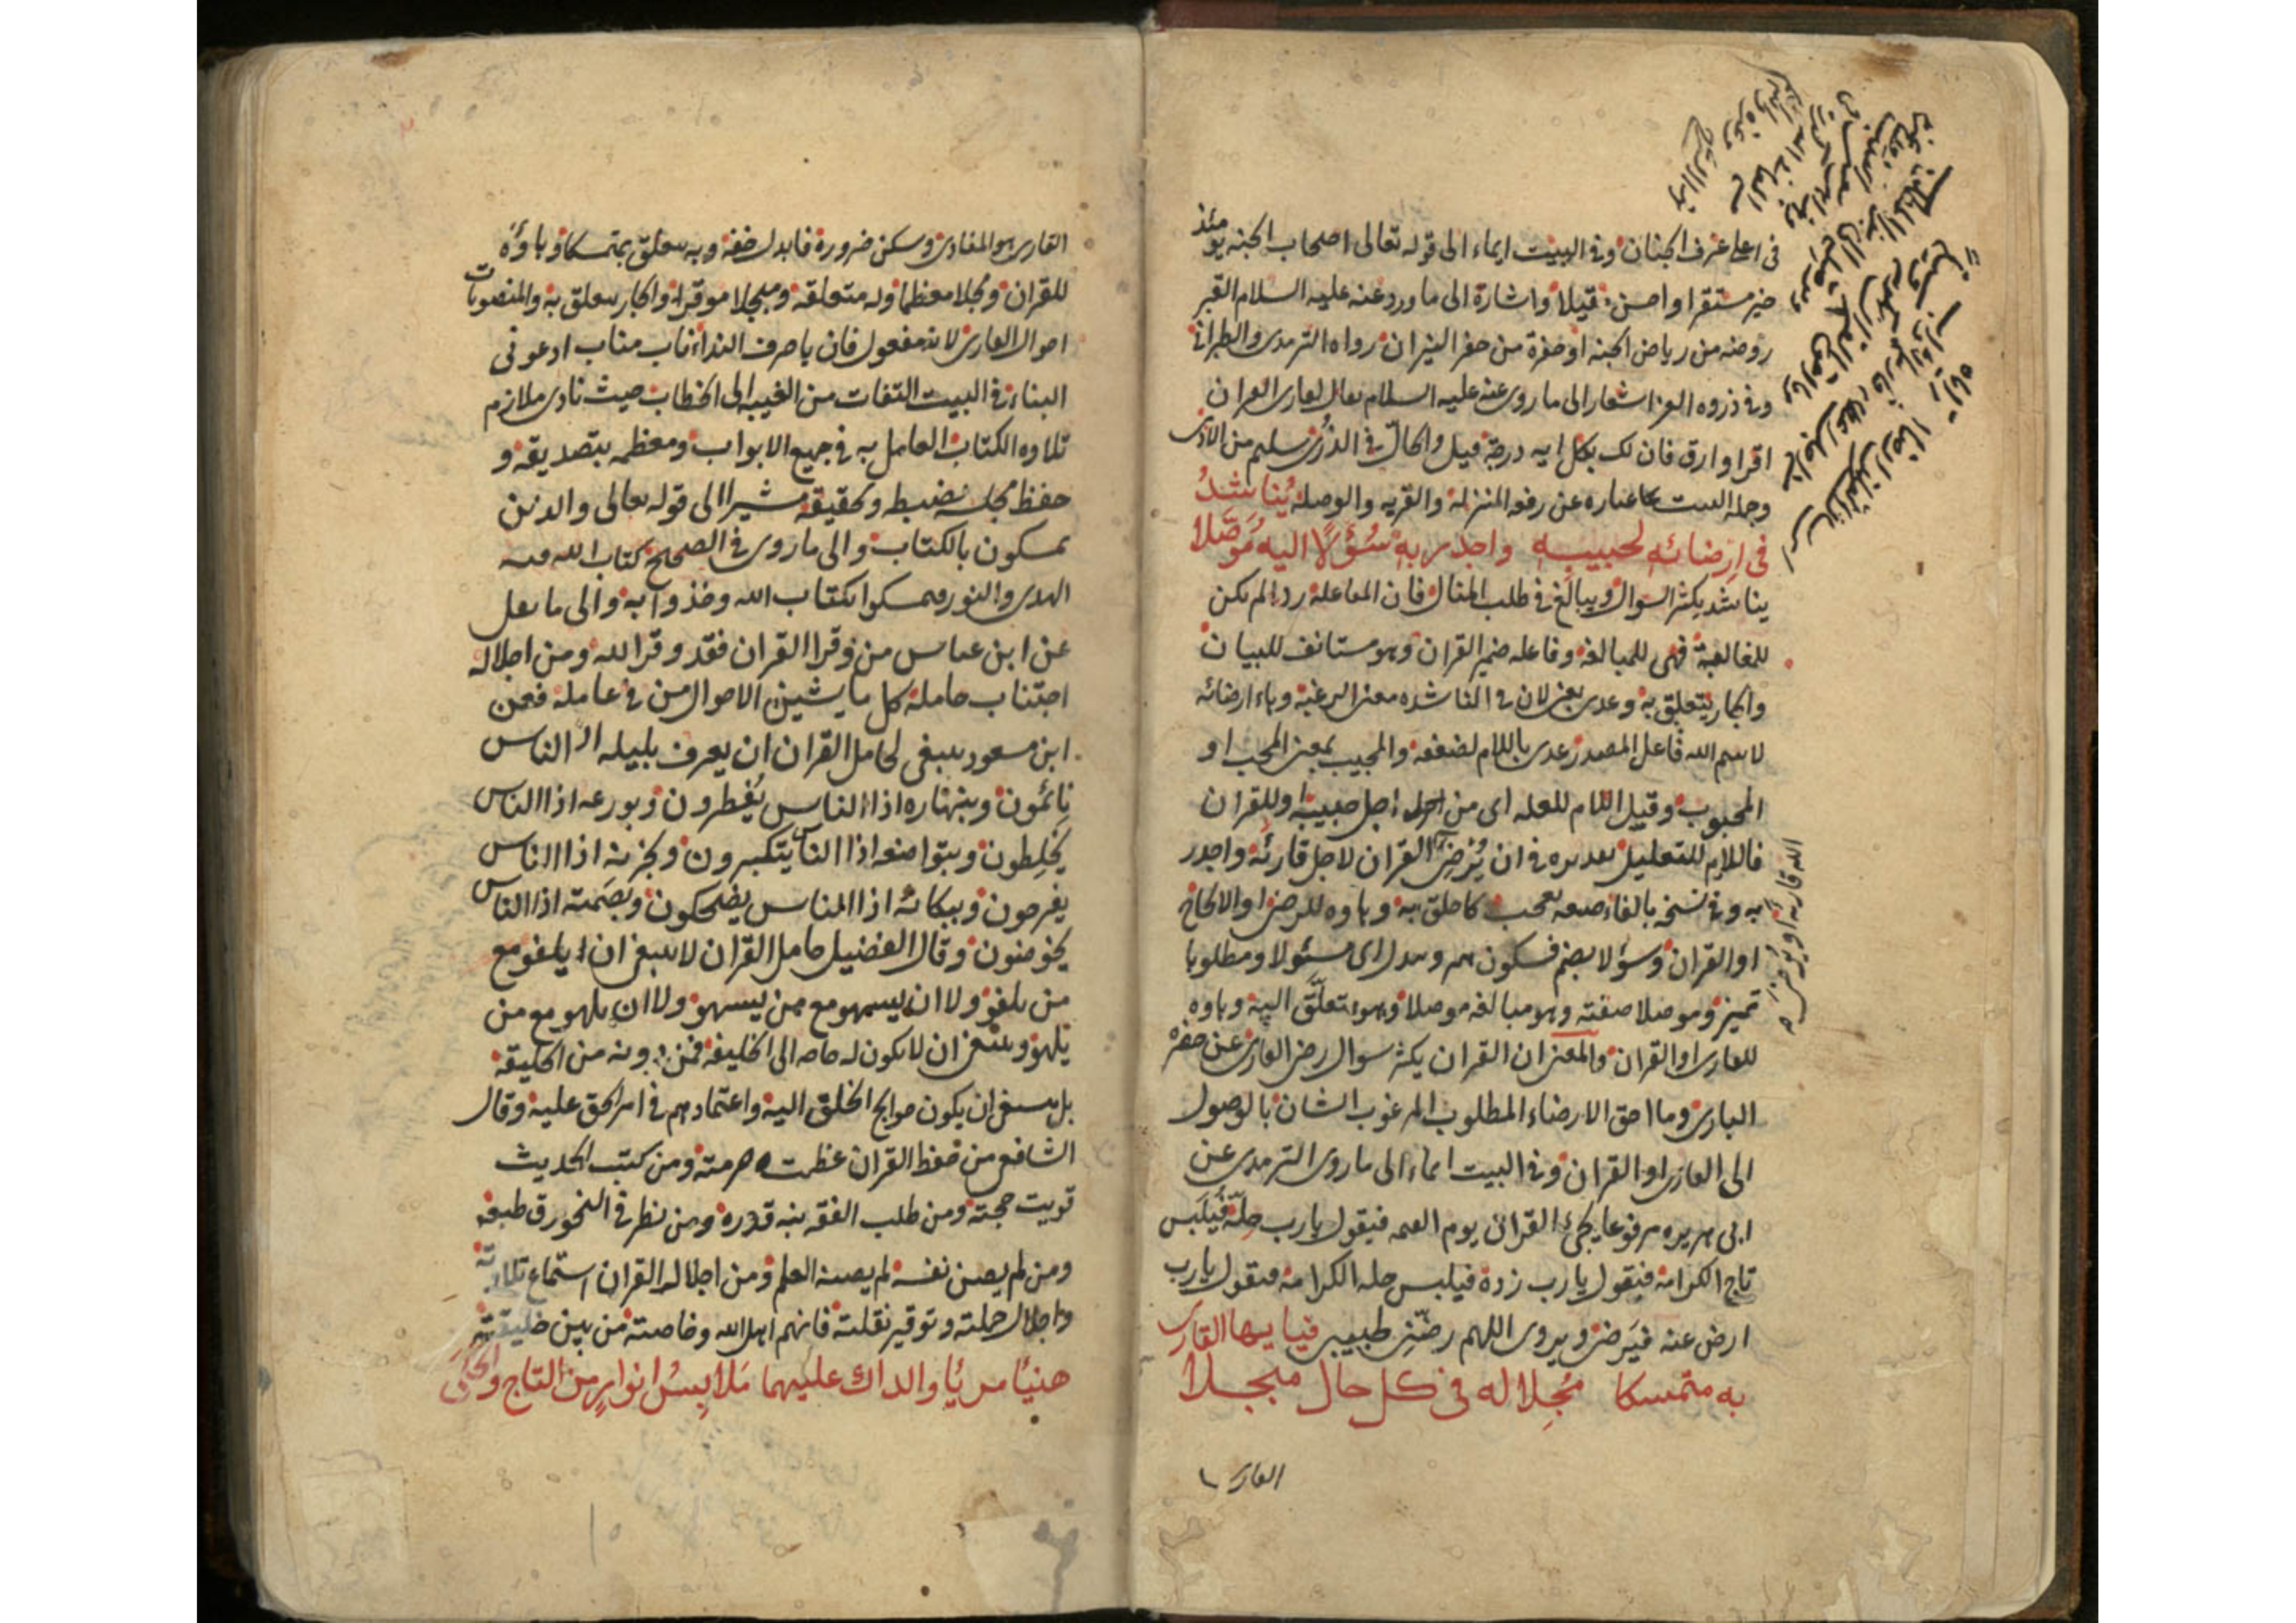 في اعلى غرف الجنان وفي البيت ايماء الى قوله تعالى اصحاب الجنه يومئذ
خير مستقرا واحسن مقيلا واشارة الى ما ورد عنه عليه السلام القبر
روضه من رياض الجنه او حفرة من حفر النيران رواه الترمدى والطبراني
وفي ذروه العز اشعار الى ما روى عنه عليه السلام يقال لقارى القران
اقرا وارق فان لك بكل ايه درجة قيل والحال في الذرى سليم من الاذى
وجملة البيت عباره عن رفع المنزلة والقربه والوصلة يُناشدُ
في ارضائه لحبيبه واجدر به سُؤلًا اليه مُوَصَّلا
يناشد يكثر السوال ويبالغ في طلب المنال فان المفاعلة اذا لم تكن
للمغالبة فهي للمبالغه وفاعله ضمير القران وهو مستانف للبيان
والجار يتعلق به وعدى بفي لان في المناشده معنى الرغبة وهاء ارضائه
لاسم الله فاعل المصدر عدى باللام لضعفه والحبيب بمعنى المحب او
المحبوب وقيل اللام للعله اى من اجل حبيبه او للقران
فاللام للتعليل تقديره في ان يُرضى القران لاجل قارئه واجدر
به وفي نسخه بالفاء صيغه تعجب كاخلق به وهاوه للرضا او الالحاح
او القران وسؤلا بضم فسكون همز وتبدل اى مسئولا ومطلوبا
تميز وموصلا صفته وهو مبالغه موصلا وهو متعلق اليه وهاوه
للقارى او القران والمعنى ان القران يكثر سوال رضى القارى عن حضره
البارى وما احق الارضاء المطلوب المرغوب الشان بالوصول
الى القارى او القران وفي البيت ايماء الى ما روى الترمدى عن
ابى هريره مرفوعا يجئ القران يوم القيمه فيقول يارب حلّه فيلبس
تاج الكرامة فيقول يارب زده فيلبس حله الكرامة فيقول يارب
ارض عنه فيرضى ويروى اللهم رضّنى لحبيبى فيا ايها القارى
به متمسكا مُجِلا له في كل حال مبجلا
القارى
الله قارئه او يُرضى
القارى هو المنادى وسكن ضرورة فابدل خفه وبه متعلق بمتمسكا وهاؤه
للقران ومجلا معظما وله متعلقه ومبجلا موقرا والجار يتعلق به والمنصوبات
احوال القارى لانه مفعول فان يا حرف النداء ناب مناب ادعو في
البناء في البيت التفات من الغيبه الى الخطاب حيث نادى ملازم
تلاوه الكتاب العامل به في جميع الابواب ومعظمه بتصديقه و
حفظ مجله بضبطه وتحقيقه مشيرا الى قوله تعالى والذين
يمسكون بالكتاب والى ما روى في الصحيح كتاب الله فيه
الهدى والنور فتمسكوا بكتاب الله وخذوا به والى ما نقل
عن ابن عباس من وقرا القران فقد وقر الله ومن اجلاله
اجتناب حامله كل ما يشينه من الاحوال في عامله فعن
ابن مسعود ينبغى لحامل القران ان يعرف بليله اذ الناس
نائمون وبنهاره اذا الناس يُفطرون وبورعه اذا الناس
يخلِطون وبتواضعه اذا الناس يتكبرون وبحزنه اذا الناس
يفرحون وببكائه اذا الناس يضحكون وبصمته اذا الناس
يخوضون وقال الفضيل حامل القران لا ينبغى ان يلغو مع
من يلغو ولا ان يسهو مع من يسهو ولا ان يلهو مع من
يلهو وينبغى ان لا يكون له حاجه الى الخليفة فمن دونه من الخليقه
بل ينبغى ان يكون حوايج الخلق اليه واعتمادهم في امر الحق عليه وقال
الشافعى من حفظ القران عظمت حرمته ومن كتب الحديث
قويت حجته ومن طلب الفقه نبه قدره ومن نظر في النحو رق طبعه
ومن لم يصن نفسه لم يصنه العلم ومن اجلاله القران استماع تلاوته
واجلال حملته وتوقير نقلته فانهم اهل الله وخاصته من بين خليقته
هنيًا مريًا والداك عليهما مَلابِسُ انوارٍ من التاج والحُلى